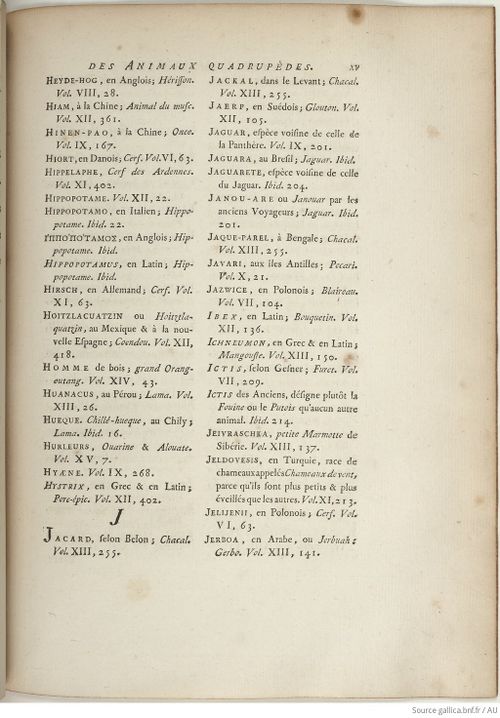 DES ANIMAUX QUADRUPÈDES. xv
HEYDE-HOG, en Anglois; Hérisson.
Vol. VIII, 28.
HIAM, à la Chine; Animal du musc.
Vol. XII, 361.
HINEN-PAO, à la Chine; Once.
Vol. IX, 167.
HIORT, en Danois; Cerf. Vol. VI, 63.
HIPPELAPHE, Cerf des Ardennes.
Vol. XI, 402.
HIPPOPOTAME. Vol. XII, 22.
HIPPOPOTAMO, en Italien; Hippo-
potame. Ibid. 22.
ΥΠΠΟΠΟΤΑΜΟΣ, en Anglois; Hip-
popotame. Ibid.
HIPPOPOTAMUS, en Latin; Hip-
popotame. Ibid.
HIRSCH, en Allemand; Cerf. Vol.
XI, 63.
HOITZLACUATZIN ou Hoitzla-
quatzin, au Mexique & à la nou-
velle Espagne; Coendou. Vol. XII,
418.
HOMME de bois; grand Orang-
outang. Vol. XIV, 43.
HUANACUS, au Pérou; Lama. Vol.
XIII, 26.
HUEQUE. Chillé-hueque, au Chily;
Lama. Ibid. 16.
HURLEURS, Ouarine & Alouate.
Vol. XV, 7.
HYÆNE. Vol. IX, 268.
HYSTRIX, en Grec & en Latin;
Porc-épic. Vol. XII, 402.
J
JACARD, selon Belon; Chacal.
Vol. XIII, 255.
JACKAL, dans le Levant; Chacal.
Vol. XIII, 255.
JAERP, en Suédois; Glouton. Vol.
XII, 105.
JAGUAR, espèce voisine de celle de
la Panthère. Vol. IX, 201.
JAGUARA, au Bresil; Jaguar. Ibid.
JAGUARETE, espèce voisine de celle
du Jaguar. Ibid. 204.
JANOU-ARE ou Janouar par les
anciens Voyageurs; Jaguar. Ibid.
201.
JAQUE-PAREL, à Bengale; Chacal.
Vol. XIII, 255.
JAVARI, aux îles Antilles; Pecari.
Vol. X, 21.
JAZWICE, en Polonois; Blaireau.
Vol. VII, 104.
IBEX, en Latin; Bouquetin. Vol.
XII, 136.
ICHNEUMON, en Grec & en Latin;
Mangouste. Vol. XIII, 150.
ICTIS, selon Gesner; Furet. Vol.
VII, 209.
ICTIS des Anciens, désigne plutôt la
Fouine ou le Putois qu'aucun autre
animal. Ibid. 214.
JEIYRASCHKA, petite Marmotte de
Sibérie. Vol. XIII, 137.
JELDOVESIS, en Turquie, race de
chameaux appelés Chameaux de vent,
parce qu'ils sont plus petits & plus
éveillés que les autres. Vol. XI, 213.
JELIJENII, en Polonois; Cerf. Vol.
VI, 63.
JERBOA, en Arabe, ou Jerbuah;
Gerbo. Vol. XIII, 141.
Source gallica.bnf.fr / AU